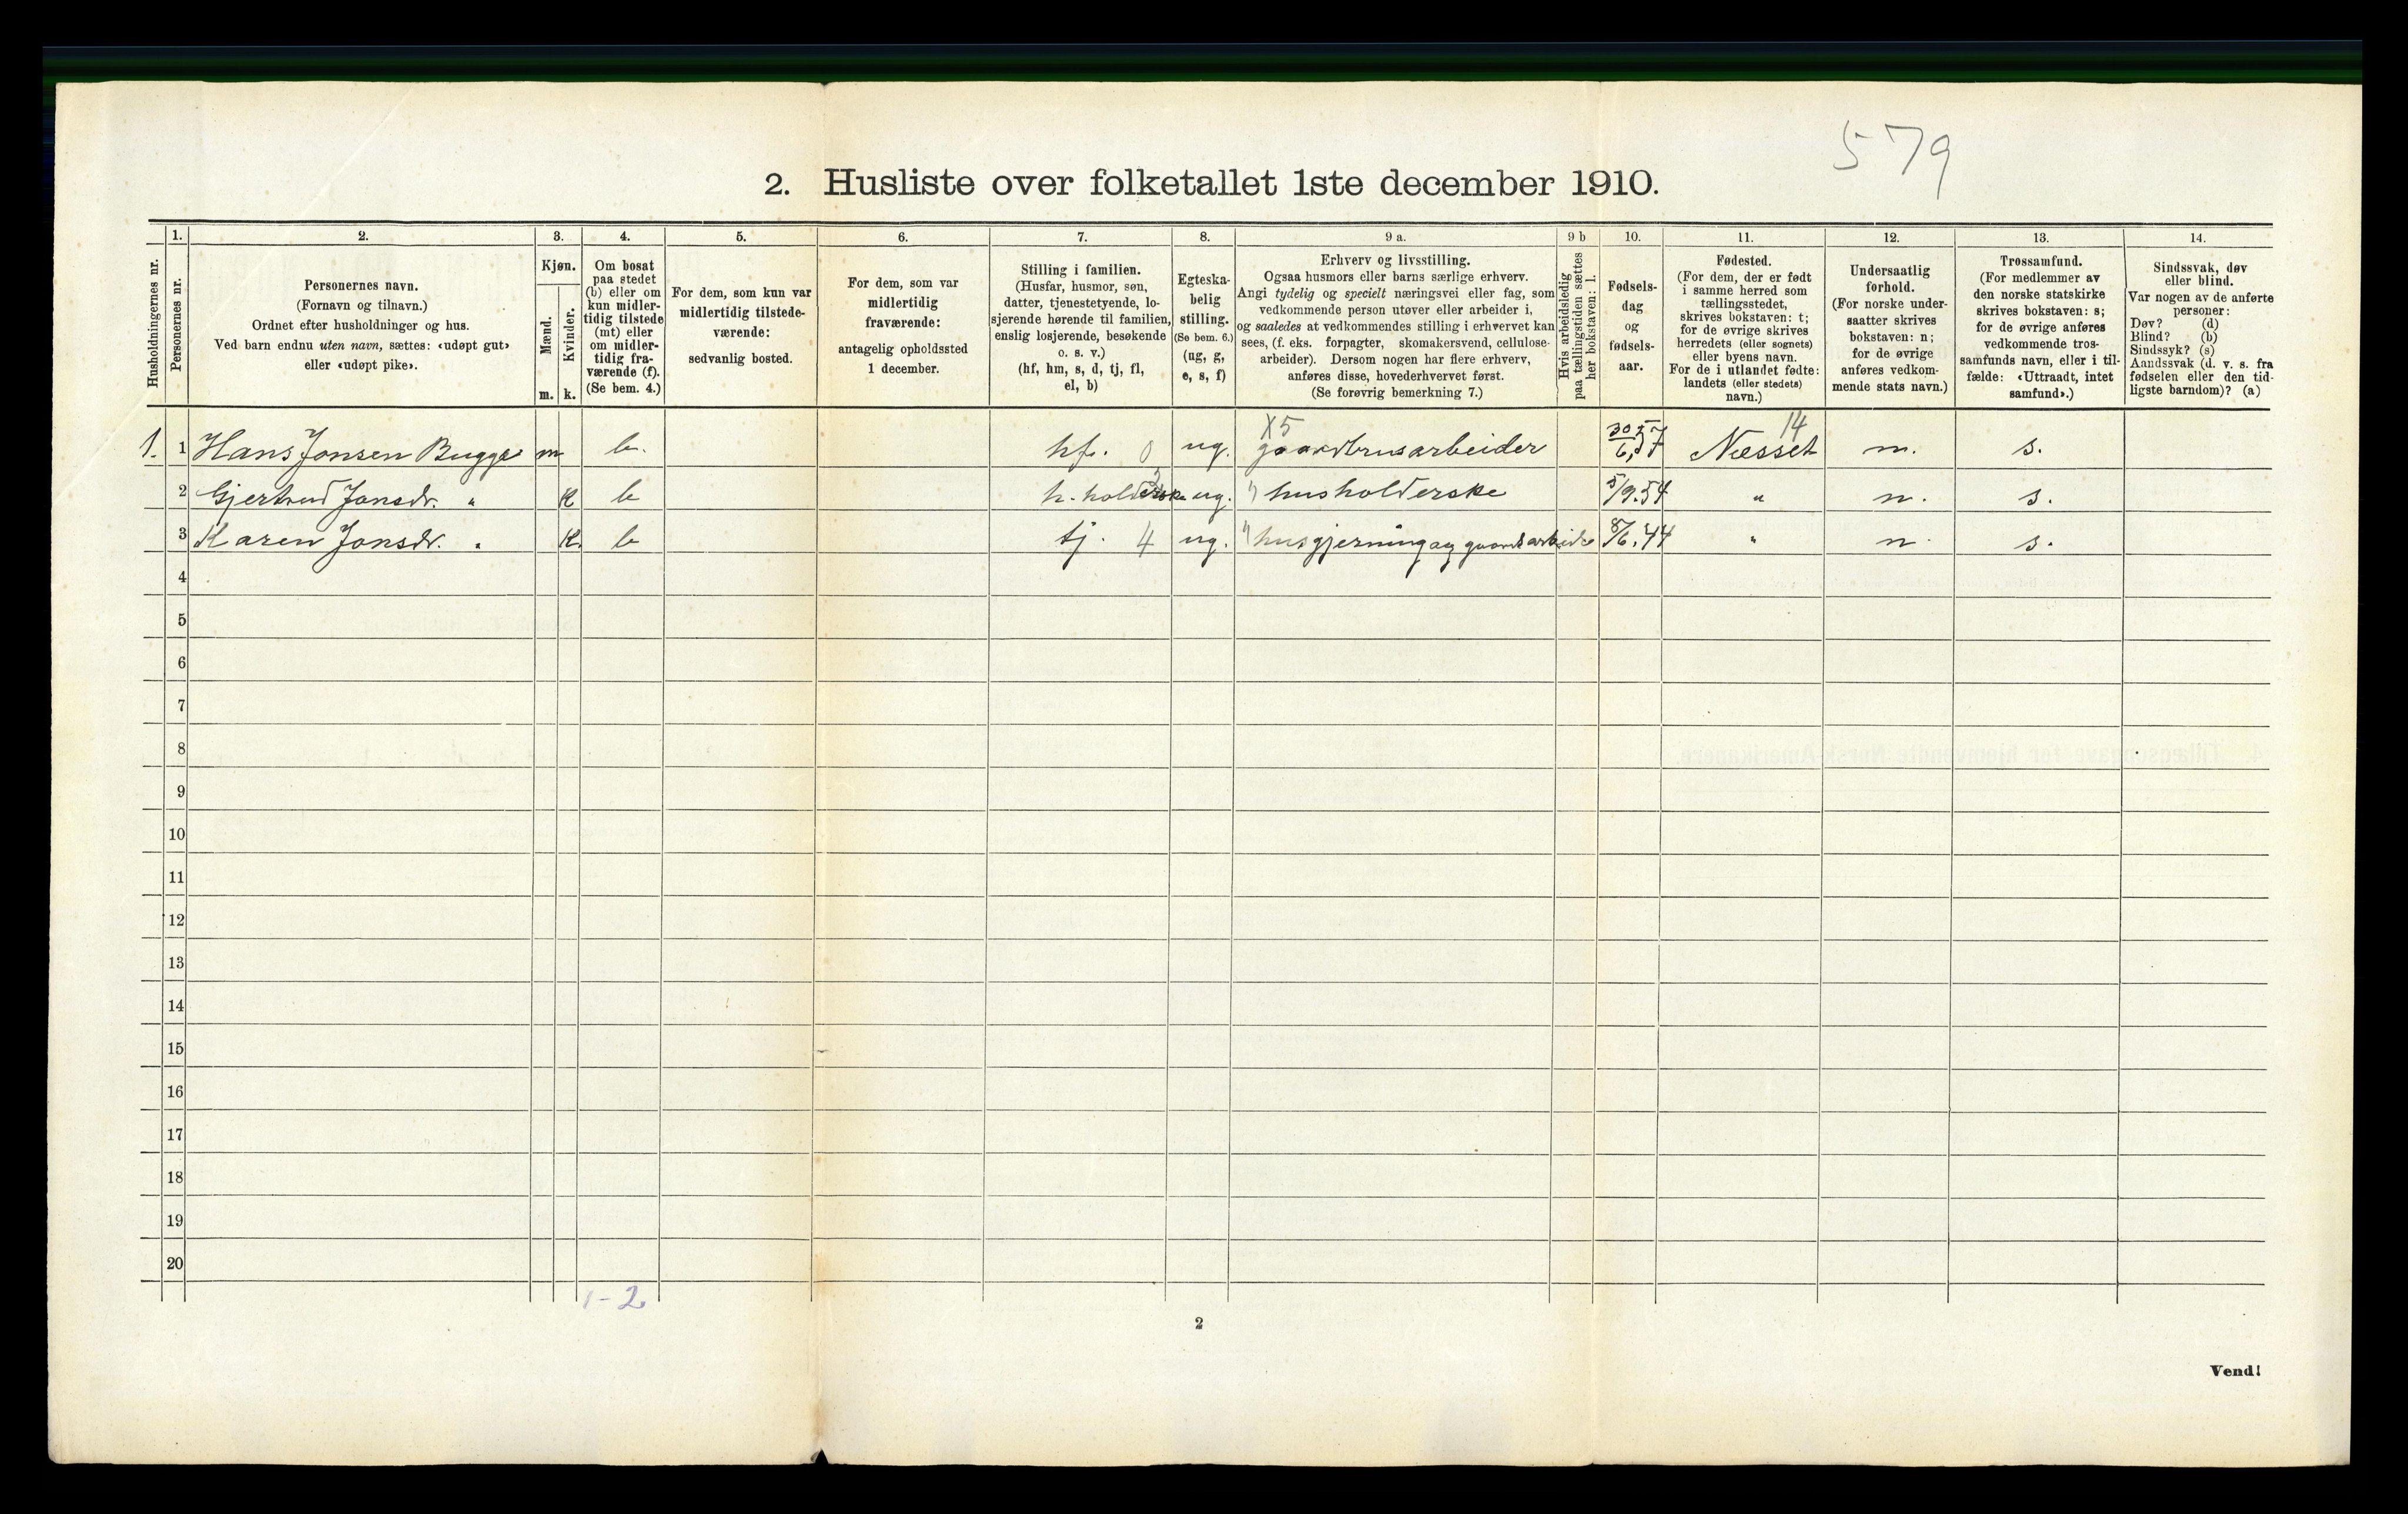 579
2. Husliste over folketallet 1ste december 1910.
Husholdningernes nr.
1.
Personernes nr.
2.
Personernes navn.
(Fornavn og tilnavn.)
Ordnet efter husholdninger og hus.
Ved barn endnu uten navn, sættes: «udøpt gut»
eller «udøpt pike».
3.
Kjøn.
Mænd.
Kvinder.
m. k.
4.
Om bosat
paa stedet
(b) eller om
kun midler-
tidig tilstede
(mt) eller
om midler-
tidig fra-
værende (f).
(Se bem. 4.)
5.
For dem, som kun var
midlertidig tilstede-
værende:
sedvanlig bosted.
6.
For dem, som var
midlertidig
fraværende:
antagelig opholdssted
1 december.
7.
Stilling i familien.
(Husfar, husmor, søn,
datter, tjenestetyende, lo-
sjerende hørende til familien,
enslig losjerende, besøkende
o. s. v.)
(hf, hm, s, d, tj, fl,
el, b)
8.
Egteska-
belig
stilling.
(Se bem. 6.)
(ug, g,
e, s, f)
9 a.
Erhverv og livsstilling.
Ogsaa husmors eller barns særlige erhverv.
Angi tydelig og specielt næringsvei eller fag, som
vedkommende person utøver eller arbeider i,
og saaledes at vedkommendes stilling i erhvervet kan
sees, (f. eks. forpagter, skomakersvend, cellulose-
arbeider). Dersom nogen har flere erhverv,
anføres disse, hovederhvervet først.
(Se forøvrig bemerkning 7.)
9 b
Hvis arbeidsledig
paa tællingstiden sættes
her bokstaven: l.
10.
Fødsels-
dag
og
fødsels-
aar.
11.
Fødested.
(For dem, der er født
i samme herred som
tællingsstedet,
skrives bokstaven: t;
for de øvrige skrives
herredets (eller sognets)
eller byens navn.
For de i utlandet fødte:
landets (eller stedets)
navn.)
12.
Undersaatlig
forhold.
(For norske under-
saatter skrives
bokstaven: n;
for de øvrige
anføres vedkom-
mende stats navn.)
13.
Trossamfund.
(For medlemmer av
den norske statskirke
skrives bokstaven: s;
for de øvrige anføres
vedkommende tros-
samfunds navn, eller i til-
fælde: «Uttraadt, intet
samfund».)
14.
Sindssvak, døv
eller blind.
Var nogen av de anførte
personer:
Døv? (d)
Blind? (b)
Sindssyk? (s)
Aandssvak (d. v. s. fra
fødselen eller den tid-
ligste barndom)? (a)
X5 14
1. 1 Hans Jonsen Bugge m b. hf. 0 ug. gaardbrusarbeider 30/6,57 Næsset n. s.
2 Gjertrud Jonsdr. " K b h. holderske ug. " husholderske 5/9.54 " n. s.
3 Karen Jonsdr. " K. b tj. 4 ug. " husgjerning og gaardsarbeide 8/6.44 " n. s.
4
5
6
7
8
9
10
11
12
13
14
15
16
17
18
19
20
1-2
2
Vend!